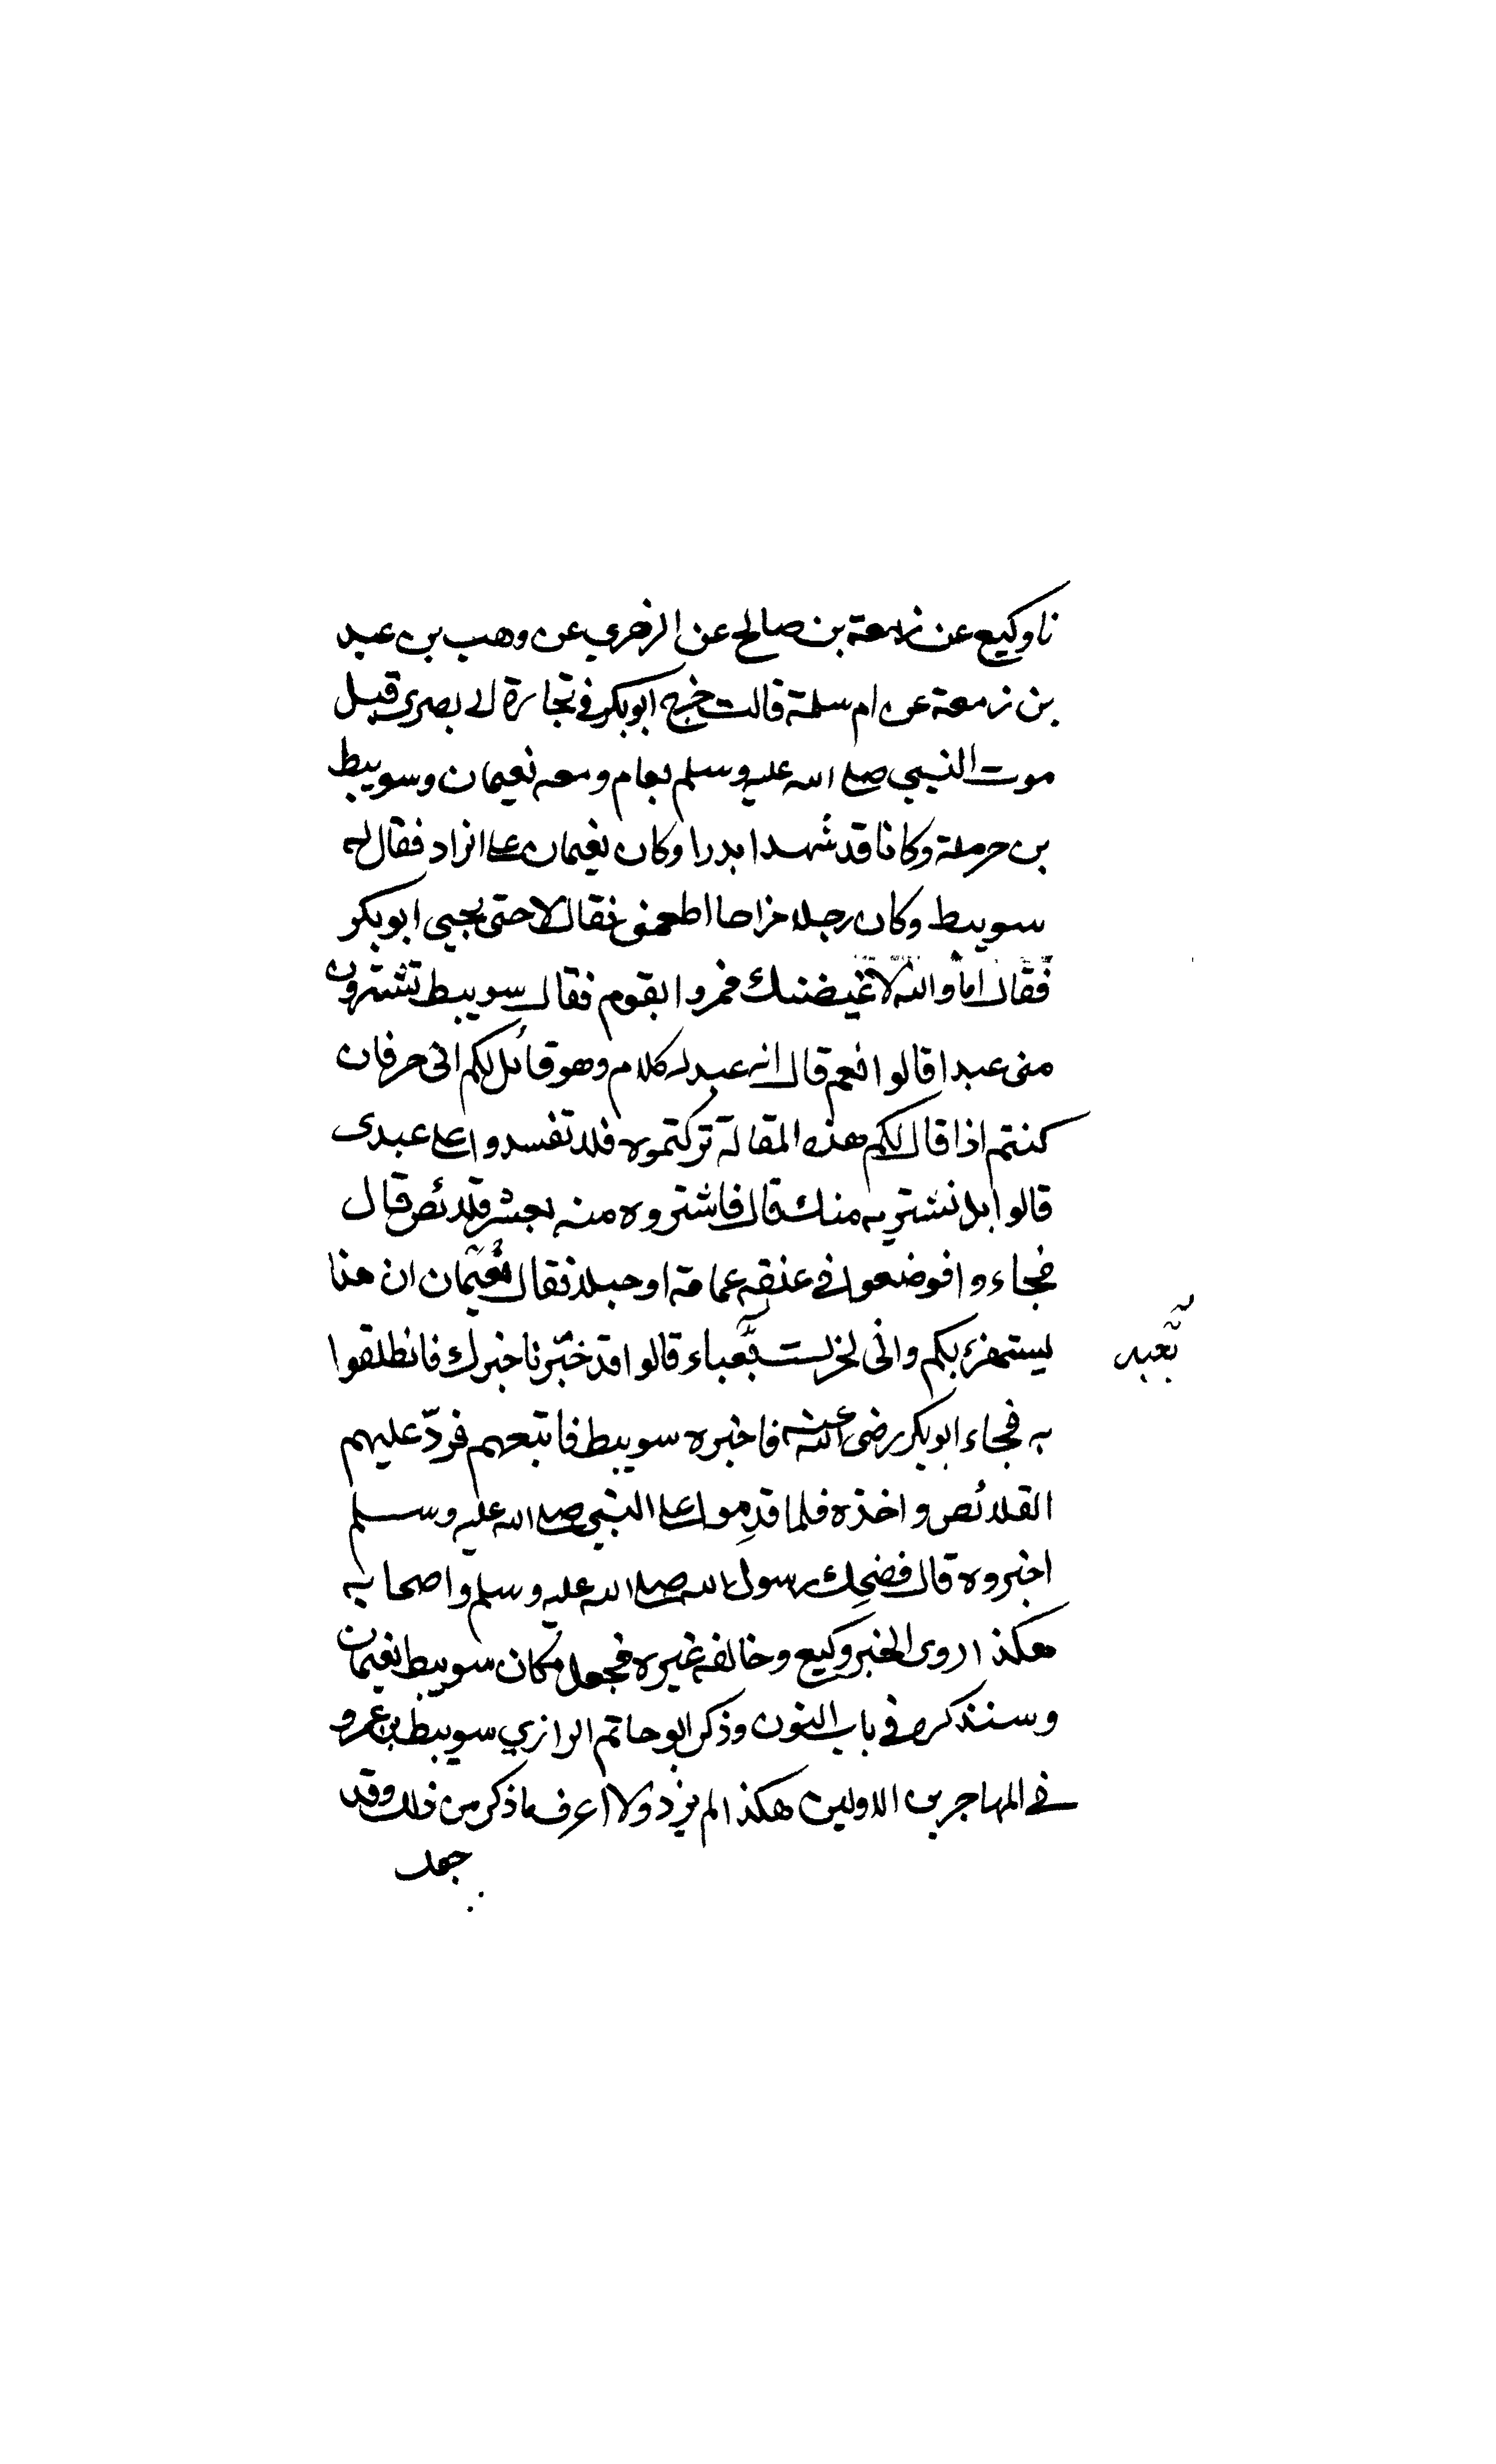 نا وكيع عن زمعة بن صالح عن الزهري عن وهب بن عبد
بن زمعة عن ام سلمة قالت خرج ابو بكر في تجارة الى بصرى قبل
موت النبي صلى الله عليه وسلم بعام ومعه نعيمان وسويبط
بن حرملة وكانا قد شهدا بدرا وكان نعيمان على الزاد فقال له
سويبط وكان رجلا مزاحا اطعمني فقال لا حتى يجيى ابو بكر
فقال اما والله لاغيضنك فمروا بقوم فقال سويبط تشترون
منى عبدا قالوا نعم قال انه عبد له كلام وهو قائل لكم انى حر فان
كنتم اذا قال لكم هذه المقالة تركتموه فلا تفسدوا على عبدى
قالوا بل نشتريه منك قال فاشتروه منه بعشر قلائص قال
فجاءوا فوضعوا في عنقه عمامة او حبلا فقال نعيمان ان هذا
يستهزئ بكم وانى لحر لست بعبد قالوا قد خبّرنا خبرك فانطلقوا
بعبد
به فجاء ابو بكر رضى الله عنه فاخبره سويبط فاتبعهم فردّ عليهم
القلائص واخذه فلما قدِموا على النبي صلى الله عليه وسلم
اخبروه قال فضحِك رسول الله صلى الله عليه وسلم واصحابه
هكذا روى الخبر وكيع وخالفه غيره فجعل مكان سويبط نعيمان
وسنذكره في باب النون وذكر ابو حاتم الرازي سويبط بن عمرو
في المهاجرين الاولين هكذا لم يزد ولا اعرف ما ذكر من ذلك وقد